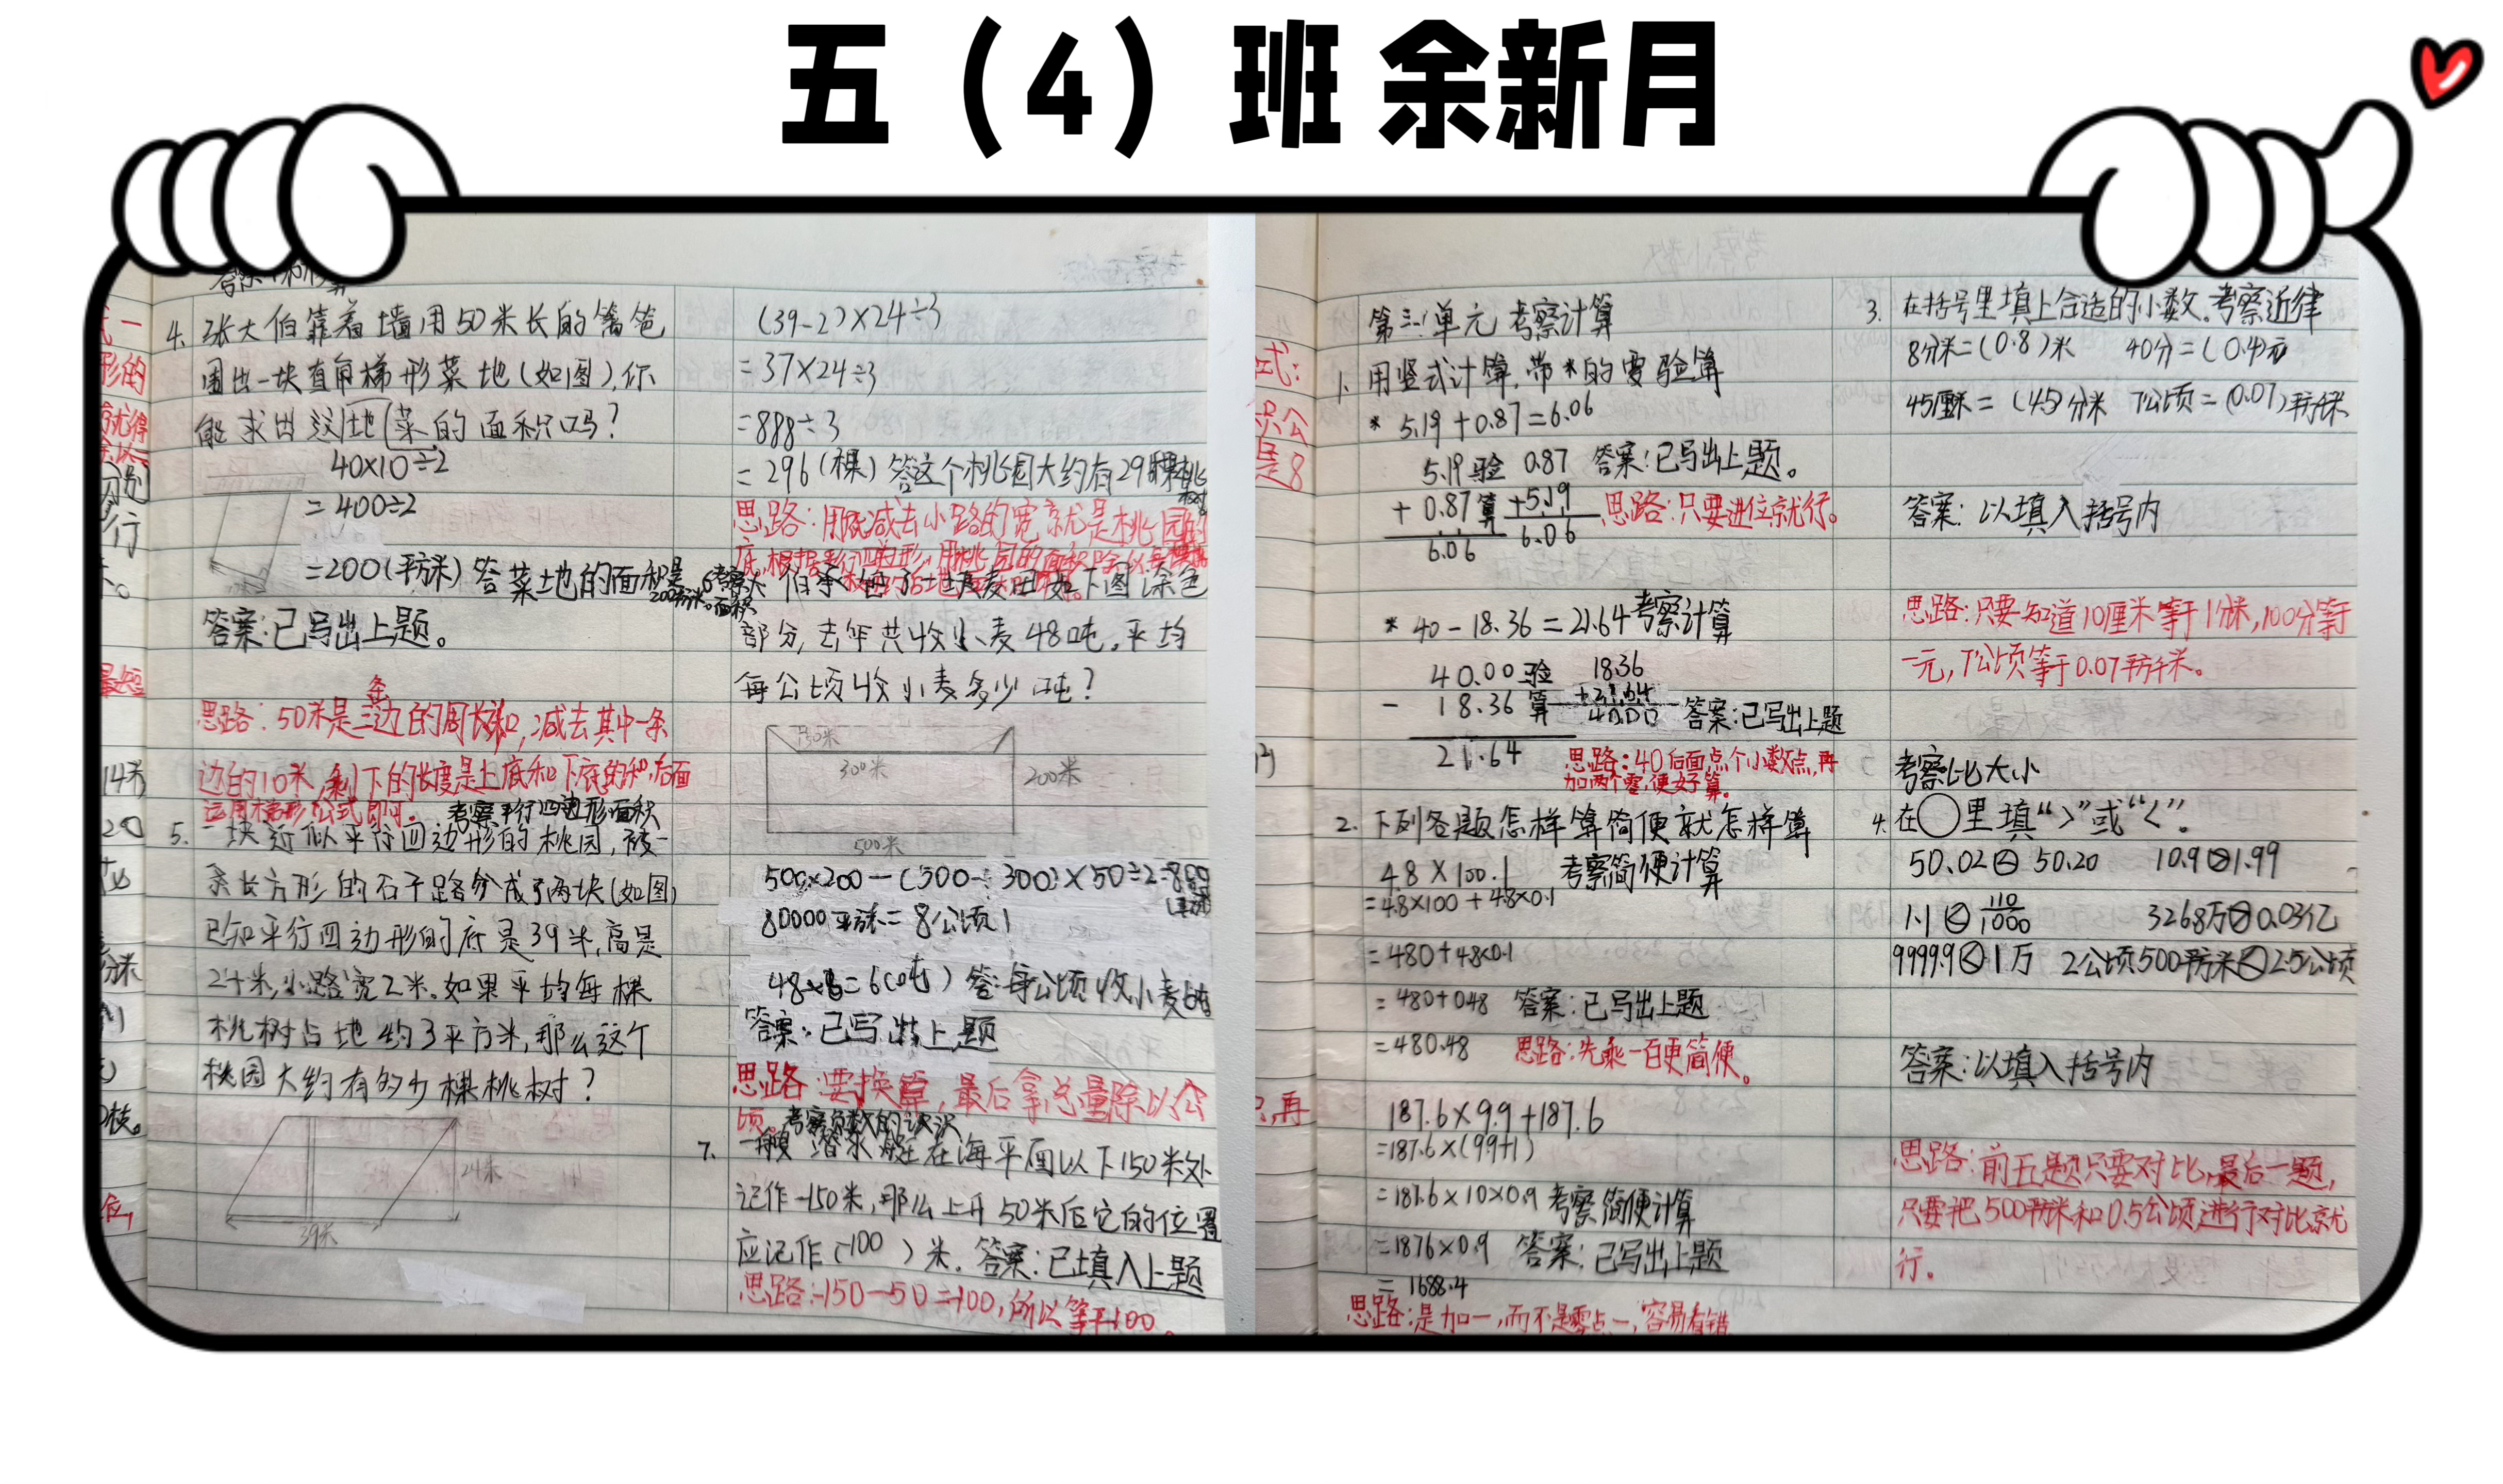 五（4）班 余新月
4. 张大伯靠着墙用50米长的篱笆
围出一块直角梯形菜地(如图),你
能求出这地菜的面积吗?
40×10÷2
=400÷2
=200(平方米) 答菜地的面积是
200平方米。
答案:已写出上题。
思路:50米是三条边的周长和,减去其中一条
边的10米,剩下的长度是上底和下底的和,后面
运用梯形公式即可。
考察平行四边形面积
5. 一块近似平行四边形的桃园,被一
条长方形的石子路分成了两块(如图)
已知平行四边形的底是39米,高是
24米,小路宽2米。如果平均每棵
桃树占地约3平方米,那么这个
桃园大约有多少棵桃树?
24米
39米
(39-2)×24÷3
=37×24÷3
=888÷3
=296(棵) 答这个桃园大约有296棵桃树
思路:用底减去小路的宽就是桃园的
底,根据平行四边形,用桃园的面积除以
6
考察
面积
下图涂色
部分,去年共收小麦48吨。平均
每公顷收小麦多少吨?
50米
300米
200米
500米
500×200-(500-300)×50÷2=
80000平方米=8公顷
=6(吨) 答:每公顷收小麦6吨
答案:已写出上题
思路:要换算,最后拿总量除以公
顷。
考察负数的认识
7. 一艘潜水艇在海平面以下150米处
记作-150米,那么上升50米后它的位置
应记作(-100)米。答案:已填入上题
思路:-150-50=-100,所以等于-100。
第三单元 考察计算
1. 用竖式计算,带*的要验算
* 5.19+0.87=6.06
5.19 验 0.87 答案:已写出上题。
+ 0.87 算 +5.19 思路:只要进位就行。
6.06 6.06
* 40-18.36=21.64 考察计算
40.00 验 18.36
- 18.36 算 +21.64 答案:已写出上题
40.00
21.64
思路:40后面点个小数点,再
加两个零,便好算。
2. 下列各题怎样算简便就怎样算
4.8×100.1 考察简便计算
=4.8×100+4.8×0.1
=480+4.8×0.1
=480+0.48 答案:已写出上题
=480.48 思路:先乘一百更简便。
187.6×9.9+187.6
=187.6×(9.9+1)
=187.6×10×0.9 考察简便计算
=1876×0.9 答案:已写出上题
=1688.4
思路:是加一,而不是零点一,容易看错
3. 在括号里填上合适的小数。考察近律
8分米=(0.8)米 40分=(0.4)元
45厘米=(4.5)分米 7公顷=(0.07)平方千米
答案:以填入括号内
思路:只要知道10厘米等于1分米,100分等于
一元,7公顷等于0.07平方千米。
考察比大小
4. 在○里填“>”或“<”。
50.02<50.20 10.9>1.99
1.1 110/1000 3268万 0.03亿
9999.9<1万 2公顷500平方米<2.5公顷
答案:以填入括号内
思路:前五题只要对比,最后一题,
只要把500平方米和0.5公顷进行对比就
行。